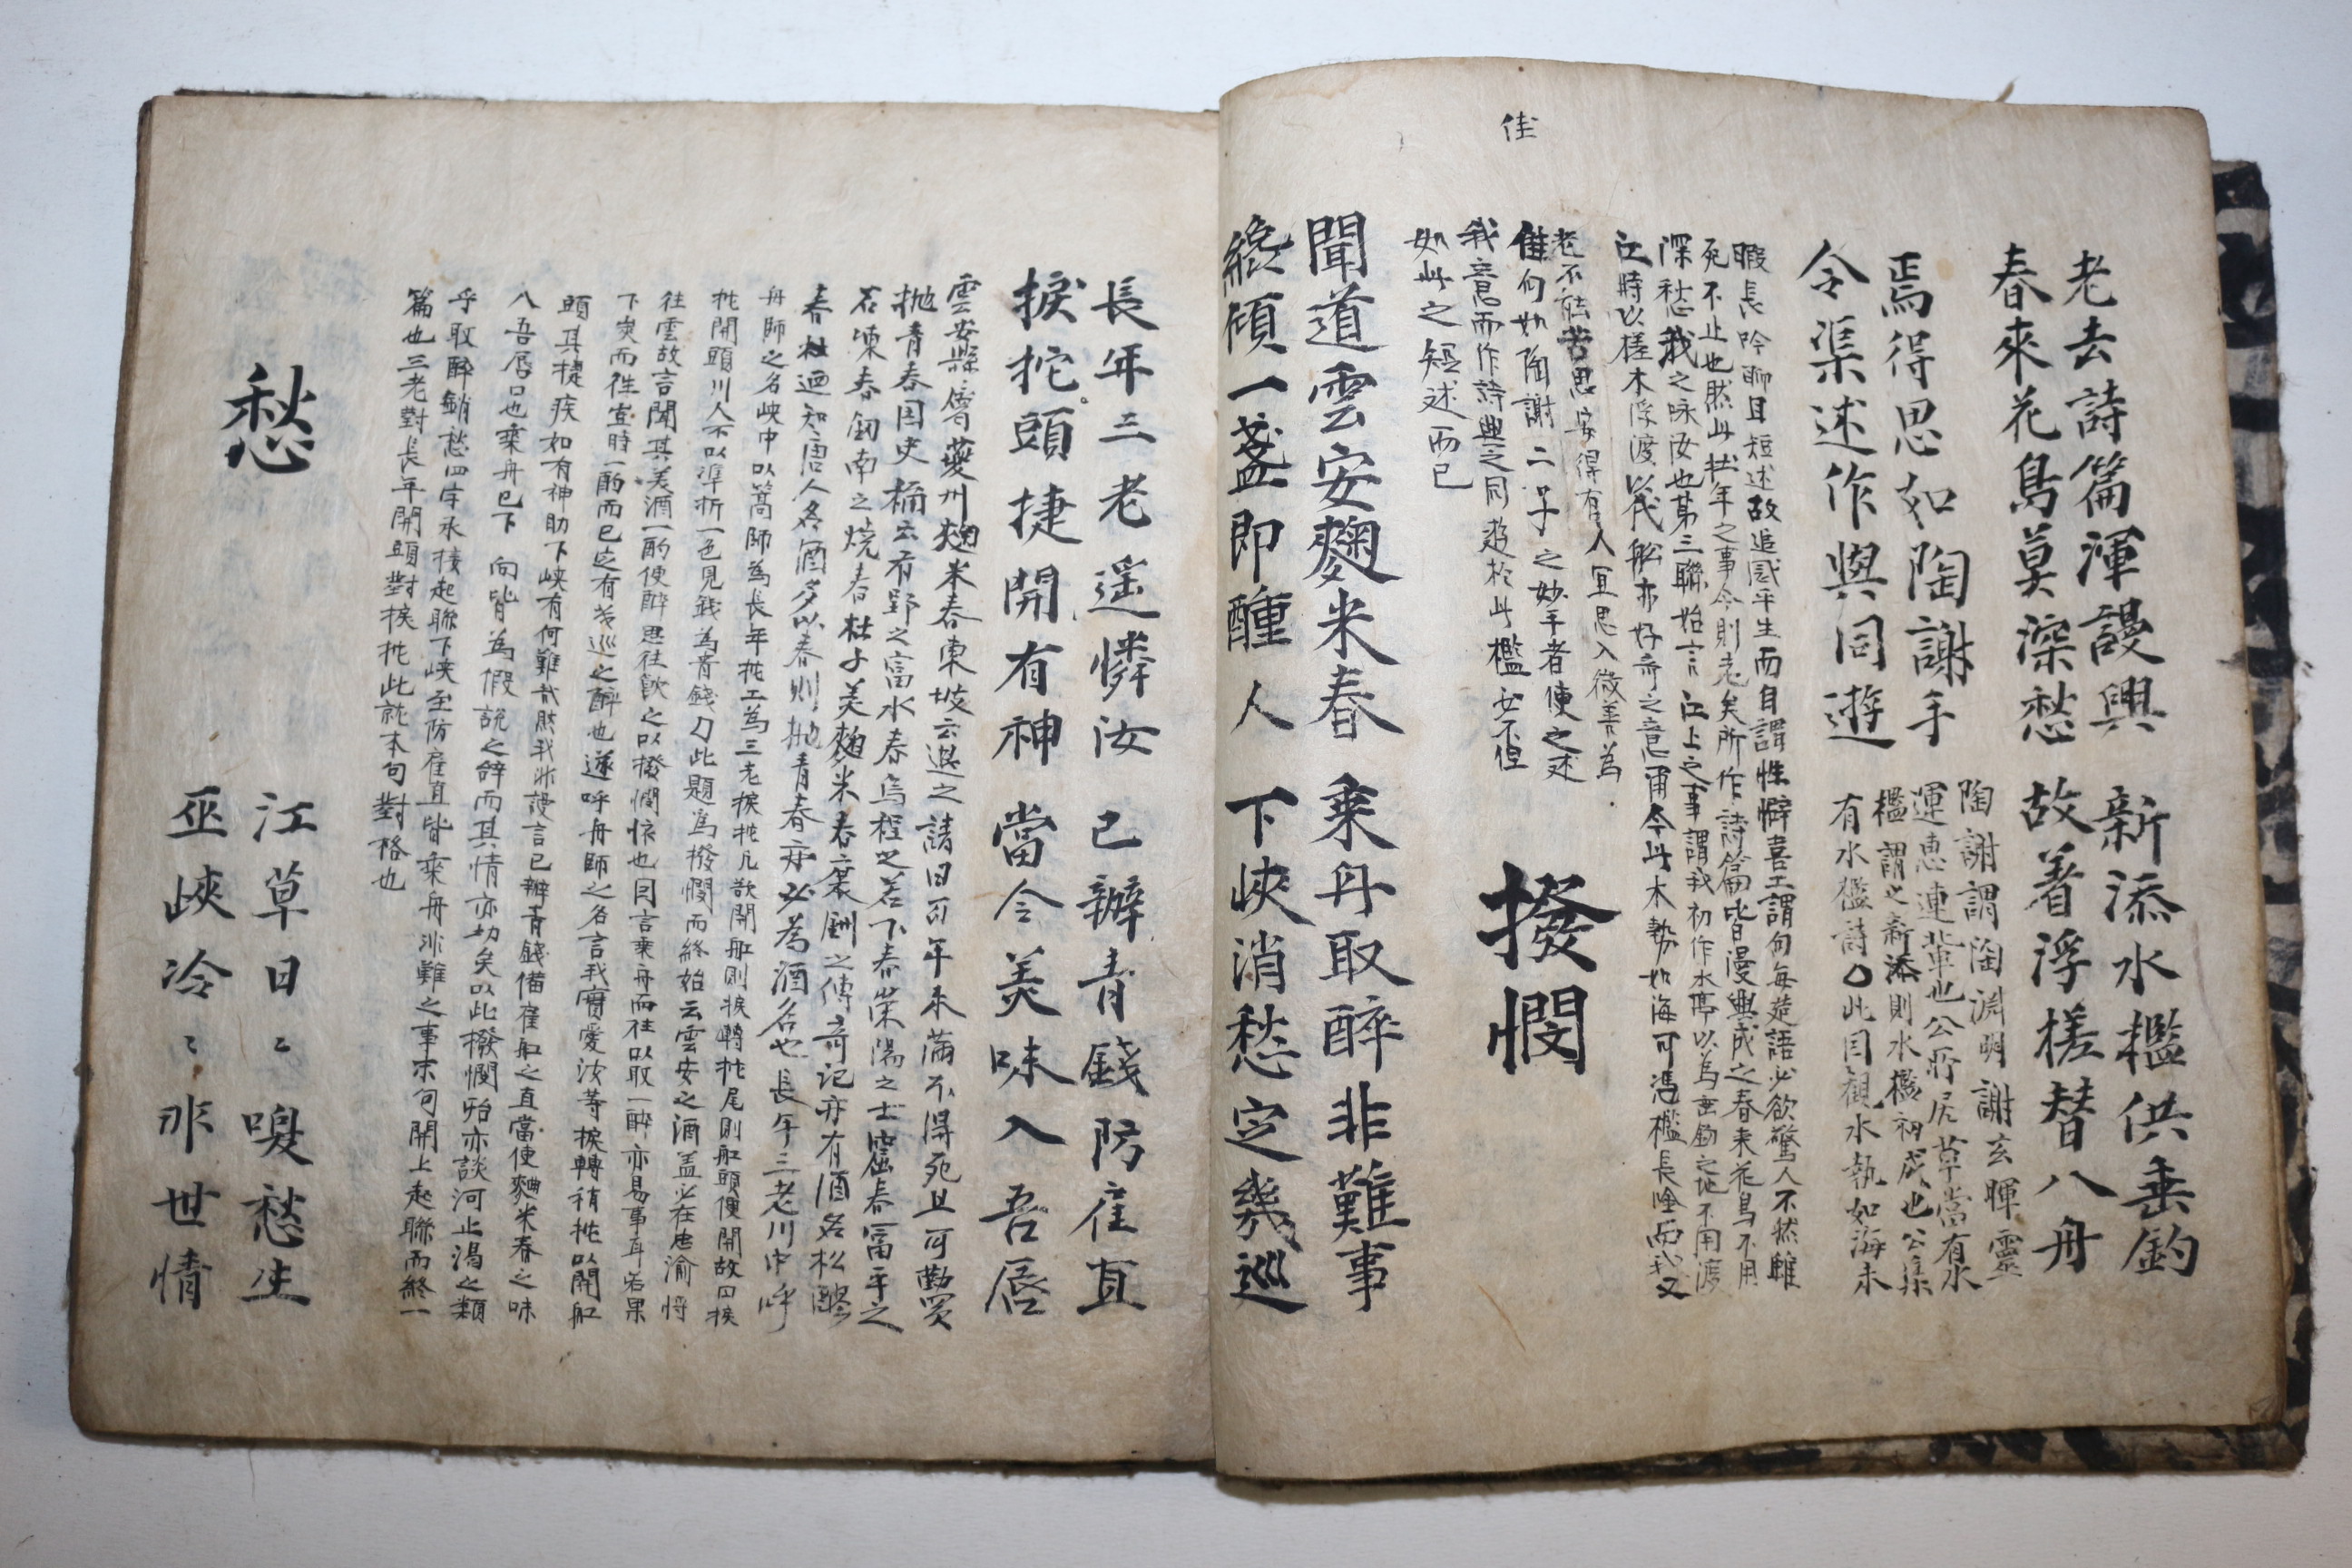 佳
老去詩篇渾謾興
春來花鳥莫深愁
新添水檻供垂釣
故着浮槎替入舟
焉得思如陶謝手
令渠述作與同遊
陶謝謂陶淵明謝玄暉靈
運惠連輩也公所居草堂有水
檻謂之新添則水檻初成也公集
有水檻詩〇此因觀水執如海未
暇長吟聊且短述故追感平生而自謂性癖喜工謂句每造語必欲驚人不然雖
死不止也然此壯年之事今則老矣所作詩篇皆漫興成之春来花鳥不用
深愁我之咏汝也第三聯始言江上之事謂我初作水亭以為垂釣之地不用渡
江時以槎木浮渡以代舩亦好奇之意甫今此木勢如海可馮檻長唫而我又
老不能苦思安得有人宜思入微善為
佳句如陶謝二子之妙手者使之述
我意而作詩與之同遊於此檻安不但
如此之短述而已
撥憫
聞道雲安麴米春
縂傾一盞即醺人
乗舟取醉非難事
下峽消愁定幾巡
長年三老遥憐汝
捩柁頭捷開有神
已辦青錢防雇直
當令美味入吾唇
雲安縣属夔州麯米春東坡云退之詩曰百年未滿不得死且可勤買
抛青春国史補云有郢之富水春烏程之若下春荥陽之土窟春富平之
石凍春釼南之焼春杜子美麯米春裴鉶之傳奇記亦有酒名松醪
春杜迺知唐人名酒多以春則抛青春亦必為酒名也長年三老川中呼
舟師之名峽中以篙師為長年柁工為三老捩柁凡欲開舡則捩轉柁尾則舡頭便開故曰捩
柁開頭川人不以準折一色見錢為青錢〇此題為撥憫而終始云雲安之酒盖必在忠渝将
往雲故言聞其美酒一酌便醉思往飲之以撥憫懷也目言乗舟而往以取一醉亦易事耳若果
下峡而徃宜時一酌而已定有幾巡之醉也遂呼舟師之名言我實愛汝等捩轉稍柁以開舡
頭其捷疾如有神助下峡有何難哉然我非謾言已辦青錢備雇舡之直當使麯米春之味
入吾唇口也乗舟已下向皆為假説之辞而其情亦切矣以此撥憫殆亦談河止渴之類
乎取醉銷愁四字承接起聯下峡至防雇直皆乗舟非難之事末句開上起聯而終一
篇也三老對長年開頭對捩柁此就本句對格也
愁
江草日〻喚愁生
巫峽冷〻非世情